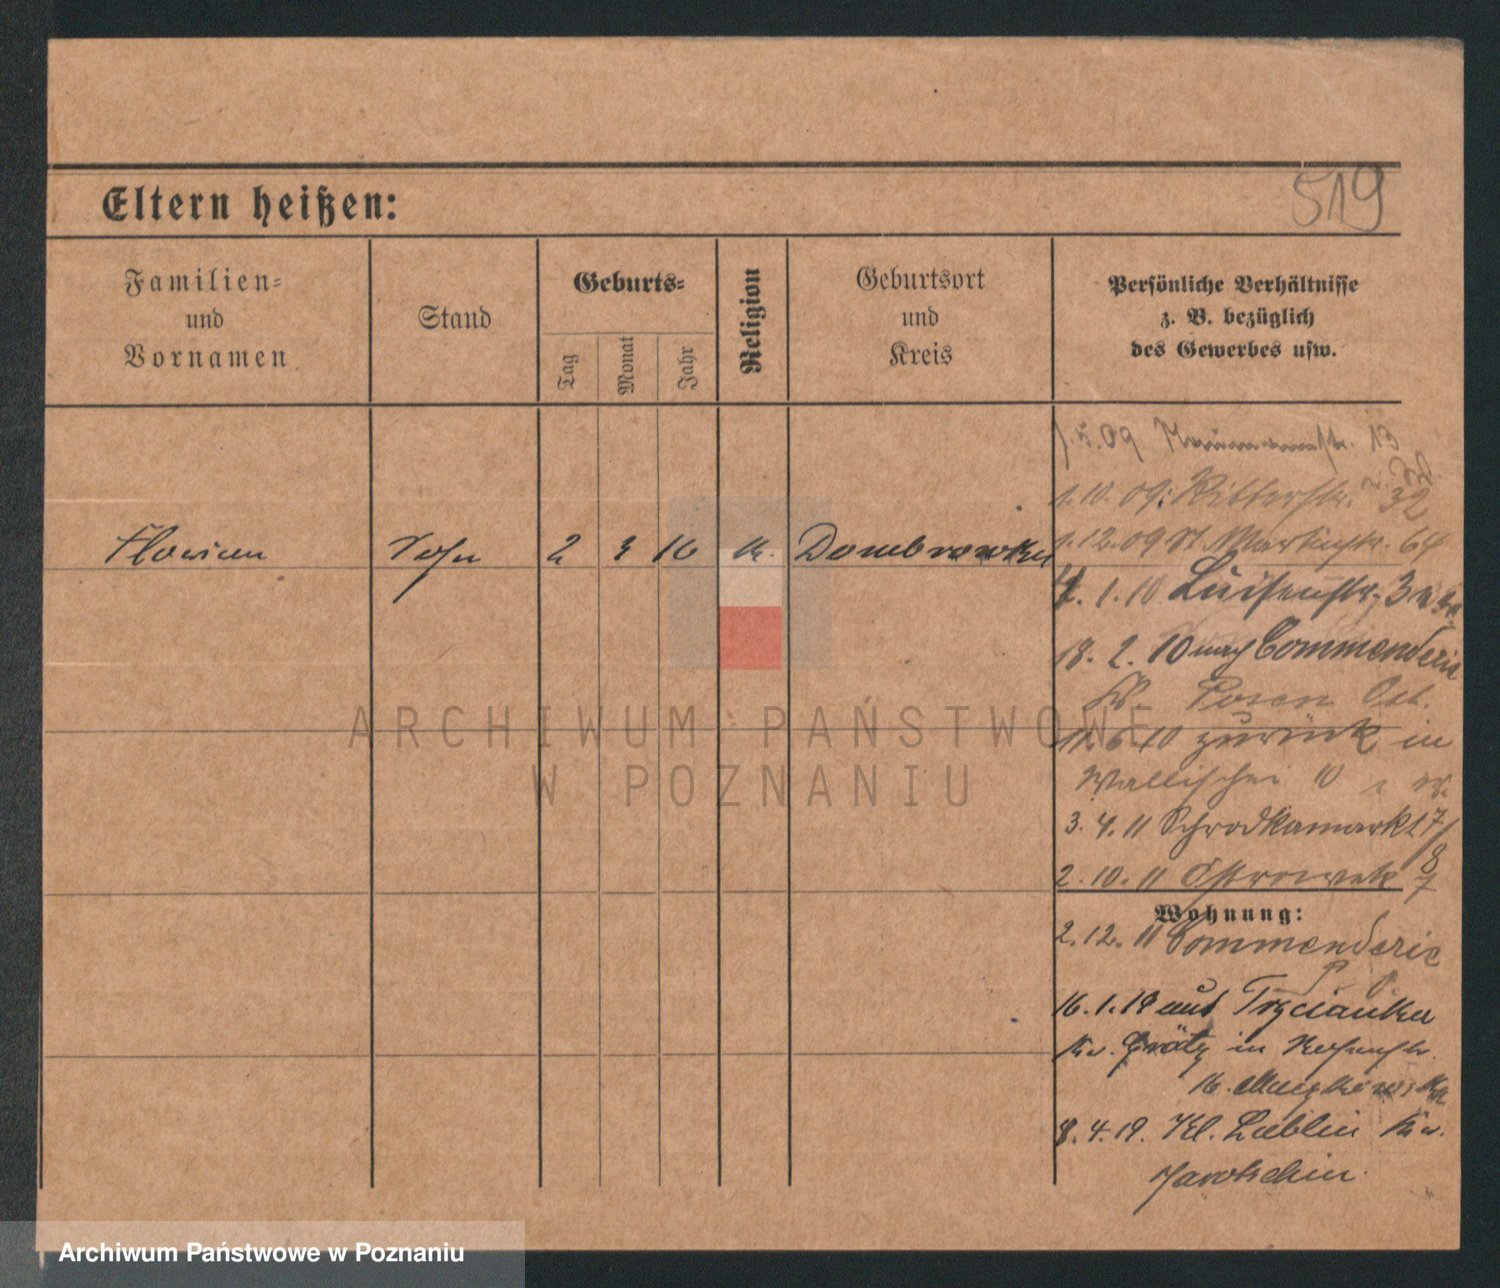 519
Eltern heißen:
Familien=
und
Vornamen
Stand
Geburts=
Tag
Monat
Jahr
Religion
Geburtsort
und
Kreis
Persönliche Verhältnisse
z. B. bezüglich
des Gewerbes usw.
Florian
Sohn
2
3
10
k.
Dombrowka
09
13
1. 10. 09. Ritterstr. 32
1. 12. 09 St. Martinstr. 64
4. 1. 10 Luisenstr. 3
18. 2. 10 nach Commenderie
Posen Ost.
10 zurück in
Wallischei 10
3. 4. 11 Schrodkamarkt 7/8
2. 10. 11 Ostrowek 7
Wohnung:
2. 12. 11 Commenderie
16. 1. 19 aus Trzcianka
Kr. Grätz in
16.
8. 4. 19. Kl. Lublin Kr.
Jarotschin.
ARCHIWUM PAŃSTWOWE
W POZNANIU
Archiwum Państwowe w Poznaniu